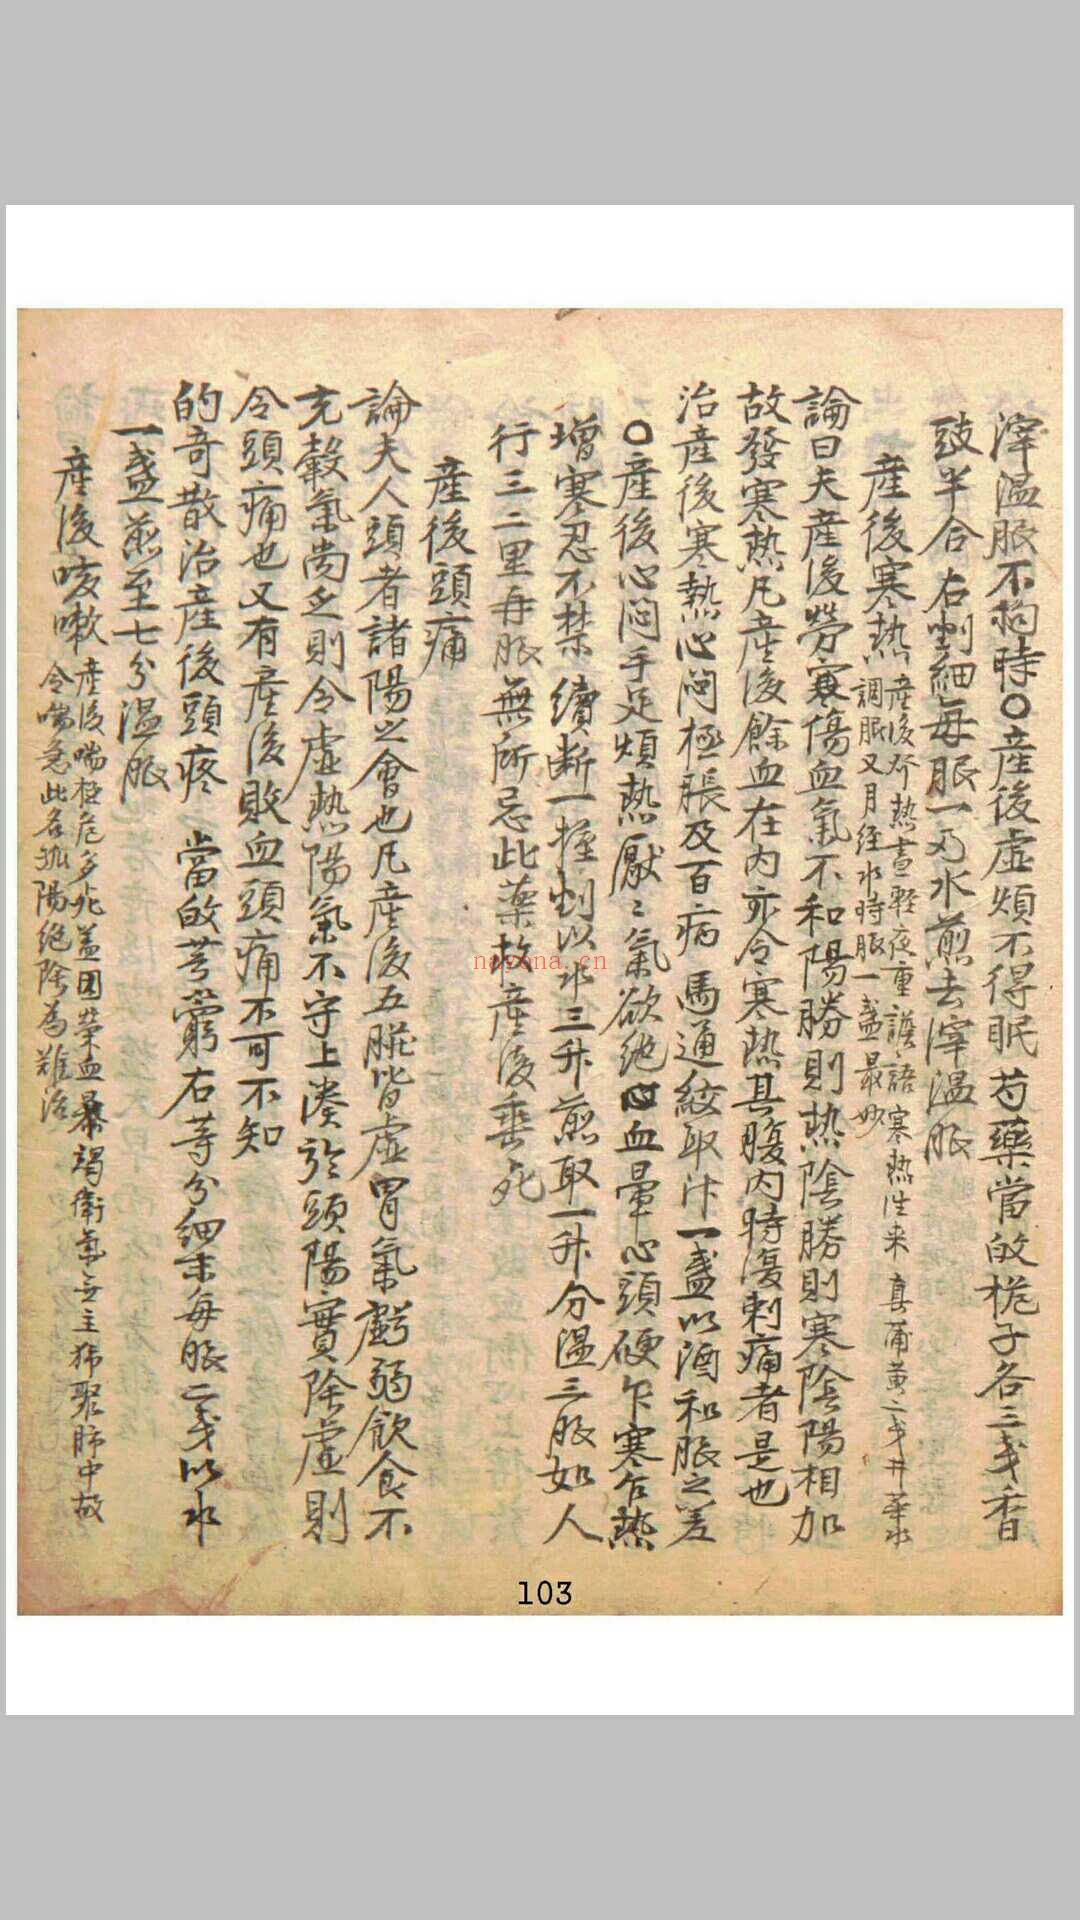 滓温服不拘時〇産後虚煩不得眠芍藥當皈梔子各三戔香
豉半合右剉細每服一刃水煎去滓温服
産後寒熱産後發熱晝輕夜重譫語寒熱往来真蒲黃二戔井華水
調服又月经水時服一盞最妙
論曰夫産後勞寒傷血氣不和陽勝則热陰勝則寒陰陽相加
故發寒熱凡産後餘血在内亦令寒热其腹内時復刺痛者是也
治産後寒熱心悶極脹及百病馬通絞取汁一盞以酒和服之差
〇産後心悶手足煩热厭〻氣欲绝心血暈心頭硬乍寒乍热
增寒忍不禁續断一握剉以水三升煎取一升分温三服如人
行三二里再服無所忌此藥救産後垂死
産後頭痛
論夫人頭者諸陽之會也凡産後五臟皆虛胃氣虧弱飲食不
充穀氣尚乏則令虚热陽氣不守上湊於頭陽實陰虚則
令頭痛也又有産後敗血頭痛不可不知
的奇散治産後頭疼當皈芎藭右等分細末每服二戔以水
一盞煎至七分温服
産後咳嗽産後喘極危多死盖因荣血暴竭衛氣無主独聚肺中故
令喘急此名孤陽绝陰為难治
nayona.cn
103